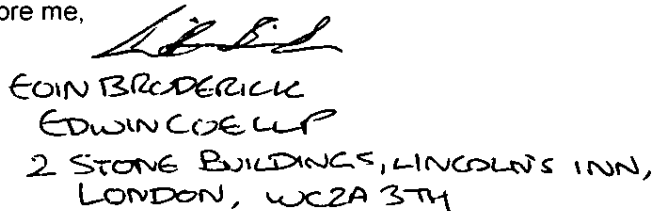 ore me,
EOIN BRODERICK
EDWIN COE LLP
2 STONE BUILDINGS, LINCOLN'S INN,
LONDON, WC2A 3TH